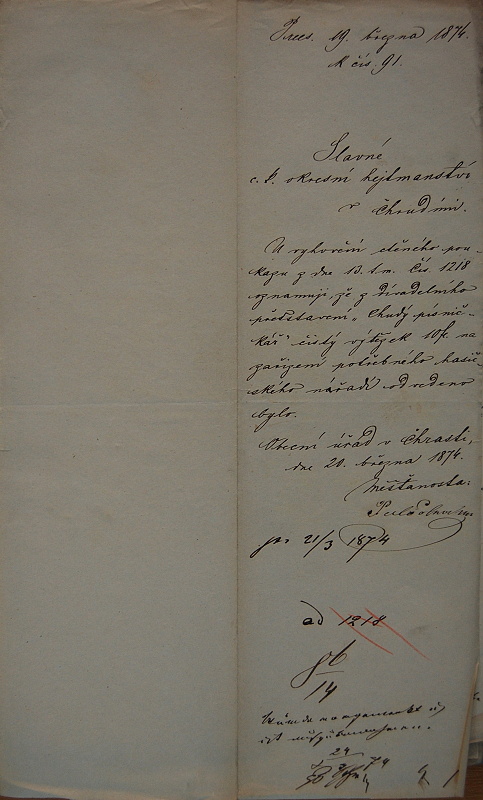 Praes. 19. března 1874.
N čís. 91.
Slavné
c. k. okresní hejtmanství
v Chrudimi.
U vyhovění ctěného pou-
kazu z dne 13. t. m. čís. 1218
oznamuji, že z divadelního
představení „Chudý písnič-
kář" čistý výtěžek 10 fl. na
zařízení potřebného hasič-
ského nářadí odvedeno
bylo.
Obecní úřad v Chrasti,
dne 20. března 1874.
Měšťanosta:
pr. 21/3 1874
ad 1218
14
ist
24
74